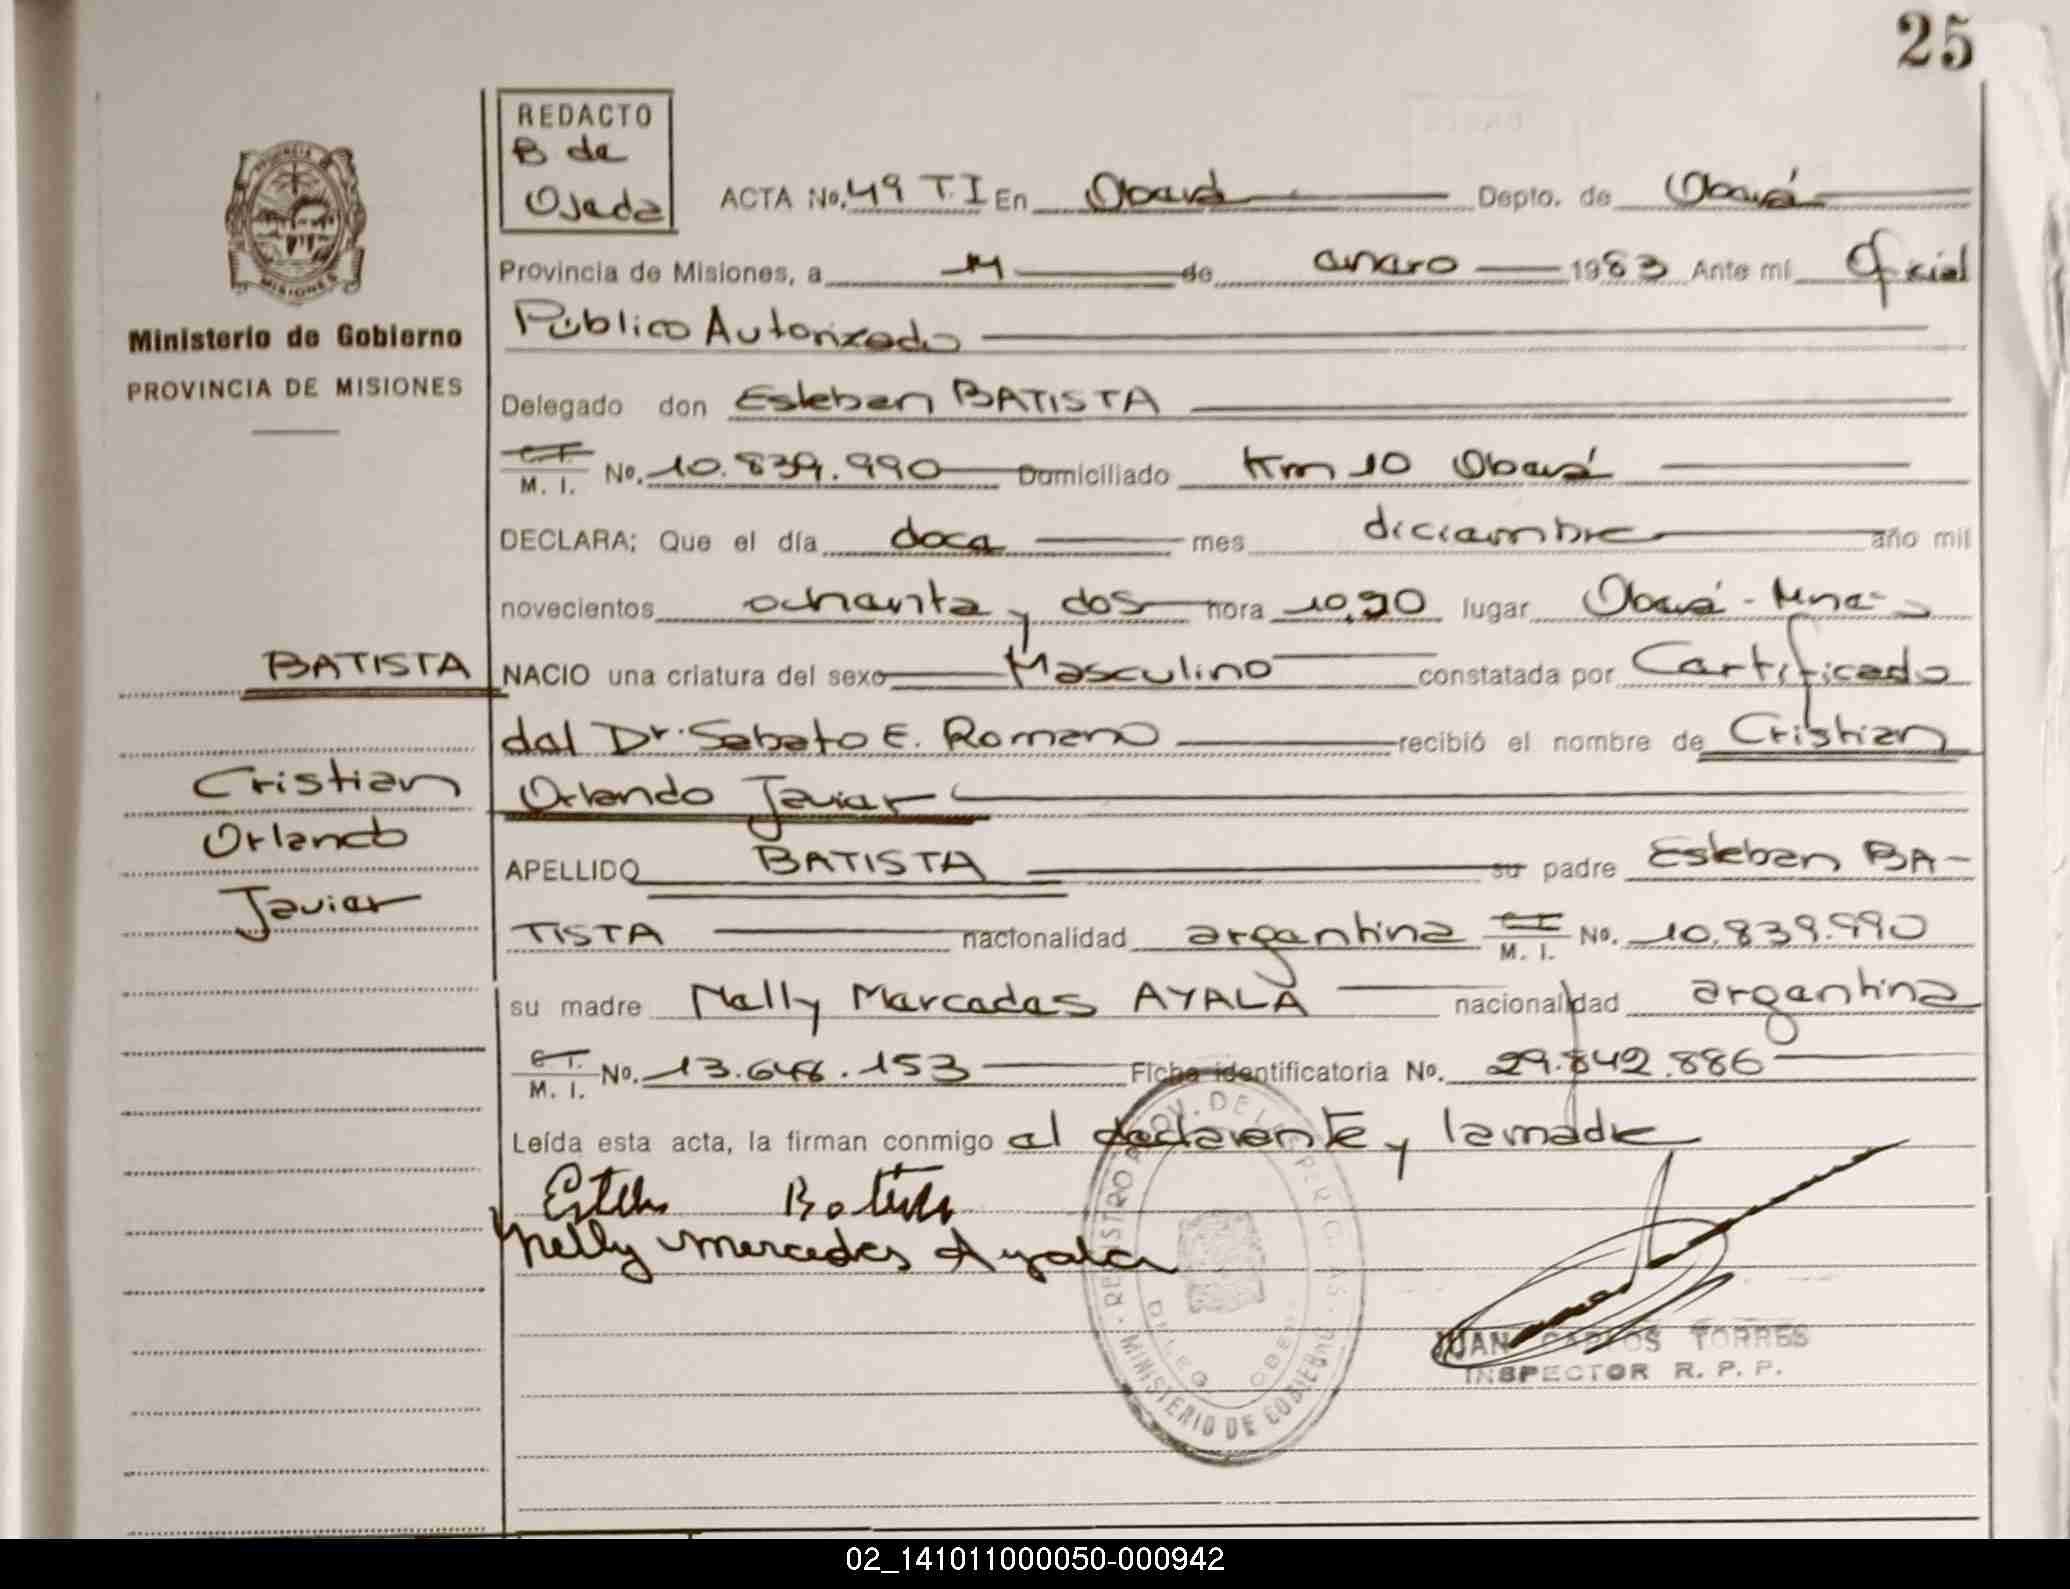 25
REDACTO
B de
Ojeda
ACTA No. 49 T.I En Oberá Depto. de Oberá
Provincia de Misiones, a 11 de enero 1983 Ante mí Oficial
Público Autorizado
Ministerio de Gobierno
PROVINCIA DE MISIONES
Delegado don Esteban BATISTA
C.I. M. I. No. 10.839.990 Domiciliado Km 10 Oberá
DECLARA; Que el día doce mes diciembre año mil
novecientos ochenta y dos hora 10,20 lugar Oberá - Mnes
BATISTA
NACIO una criatura del sexo Masculino constatada por Certificado
del Dr. Sabato E. Romano recibió el nombre de Cristian
Cristian
Orlando
Javier
Orlando Javier
APELLIDO BATISTA su padre Esteban BA-
TISTA nacionalidad argentina C.I. M. I. No. 10.839.990
su madre Nelly Mercedes AYALA nacionalidad argentina
C.I. M. I. No. 13.648.153 Ficha identificatoria No. 29.842.886
Leída esta acta, la firman conmigo el declarante y la madre
Esteban Batista
Nelly Mercedes Ayala
MINISTERIO DE GOBIERNO
JUAN CARLOS TORRES
INSPECTOR R. P. P.
02_141011000050-000942